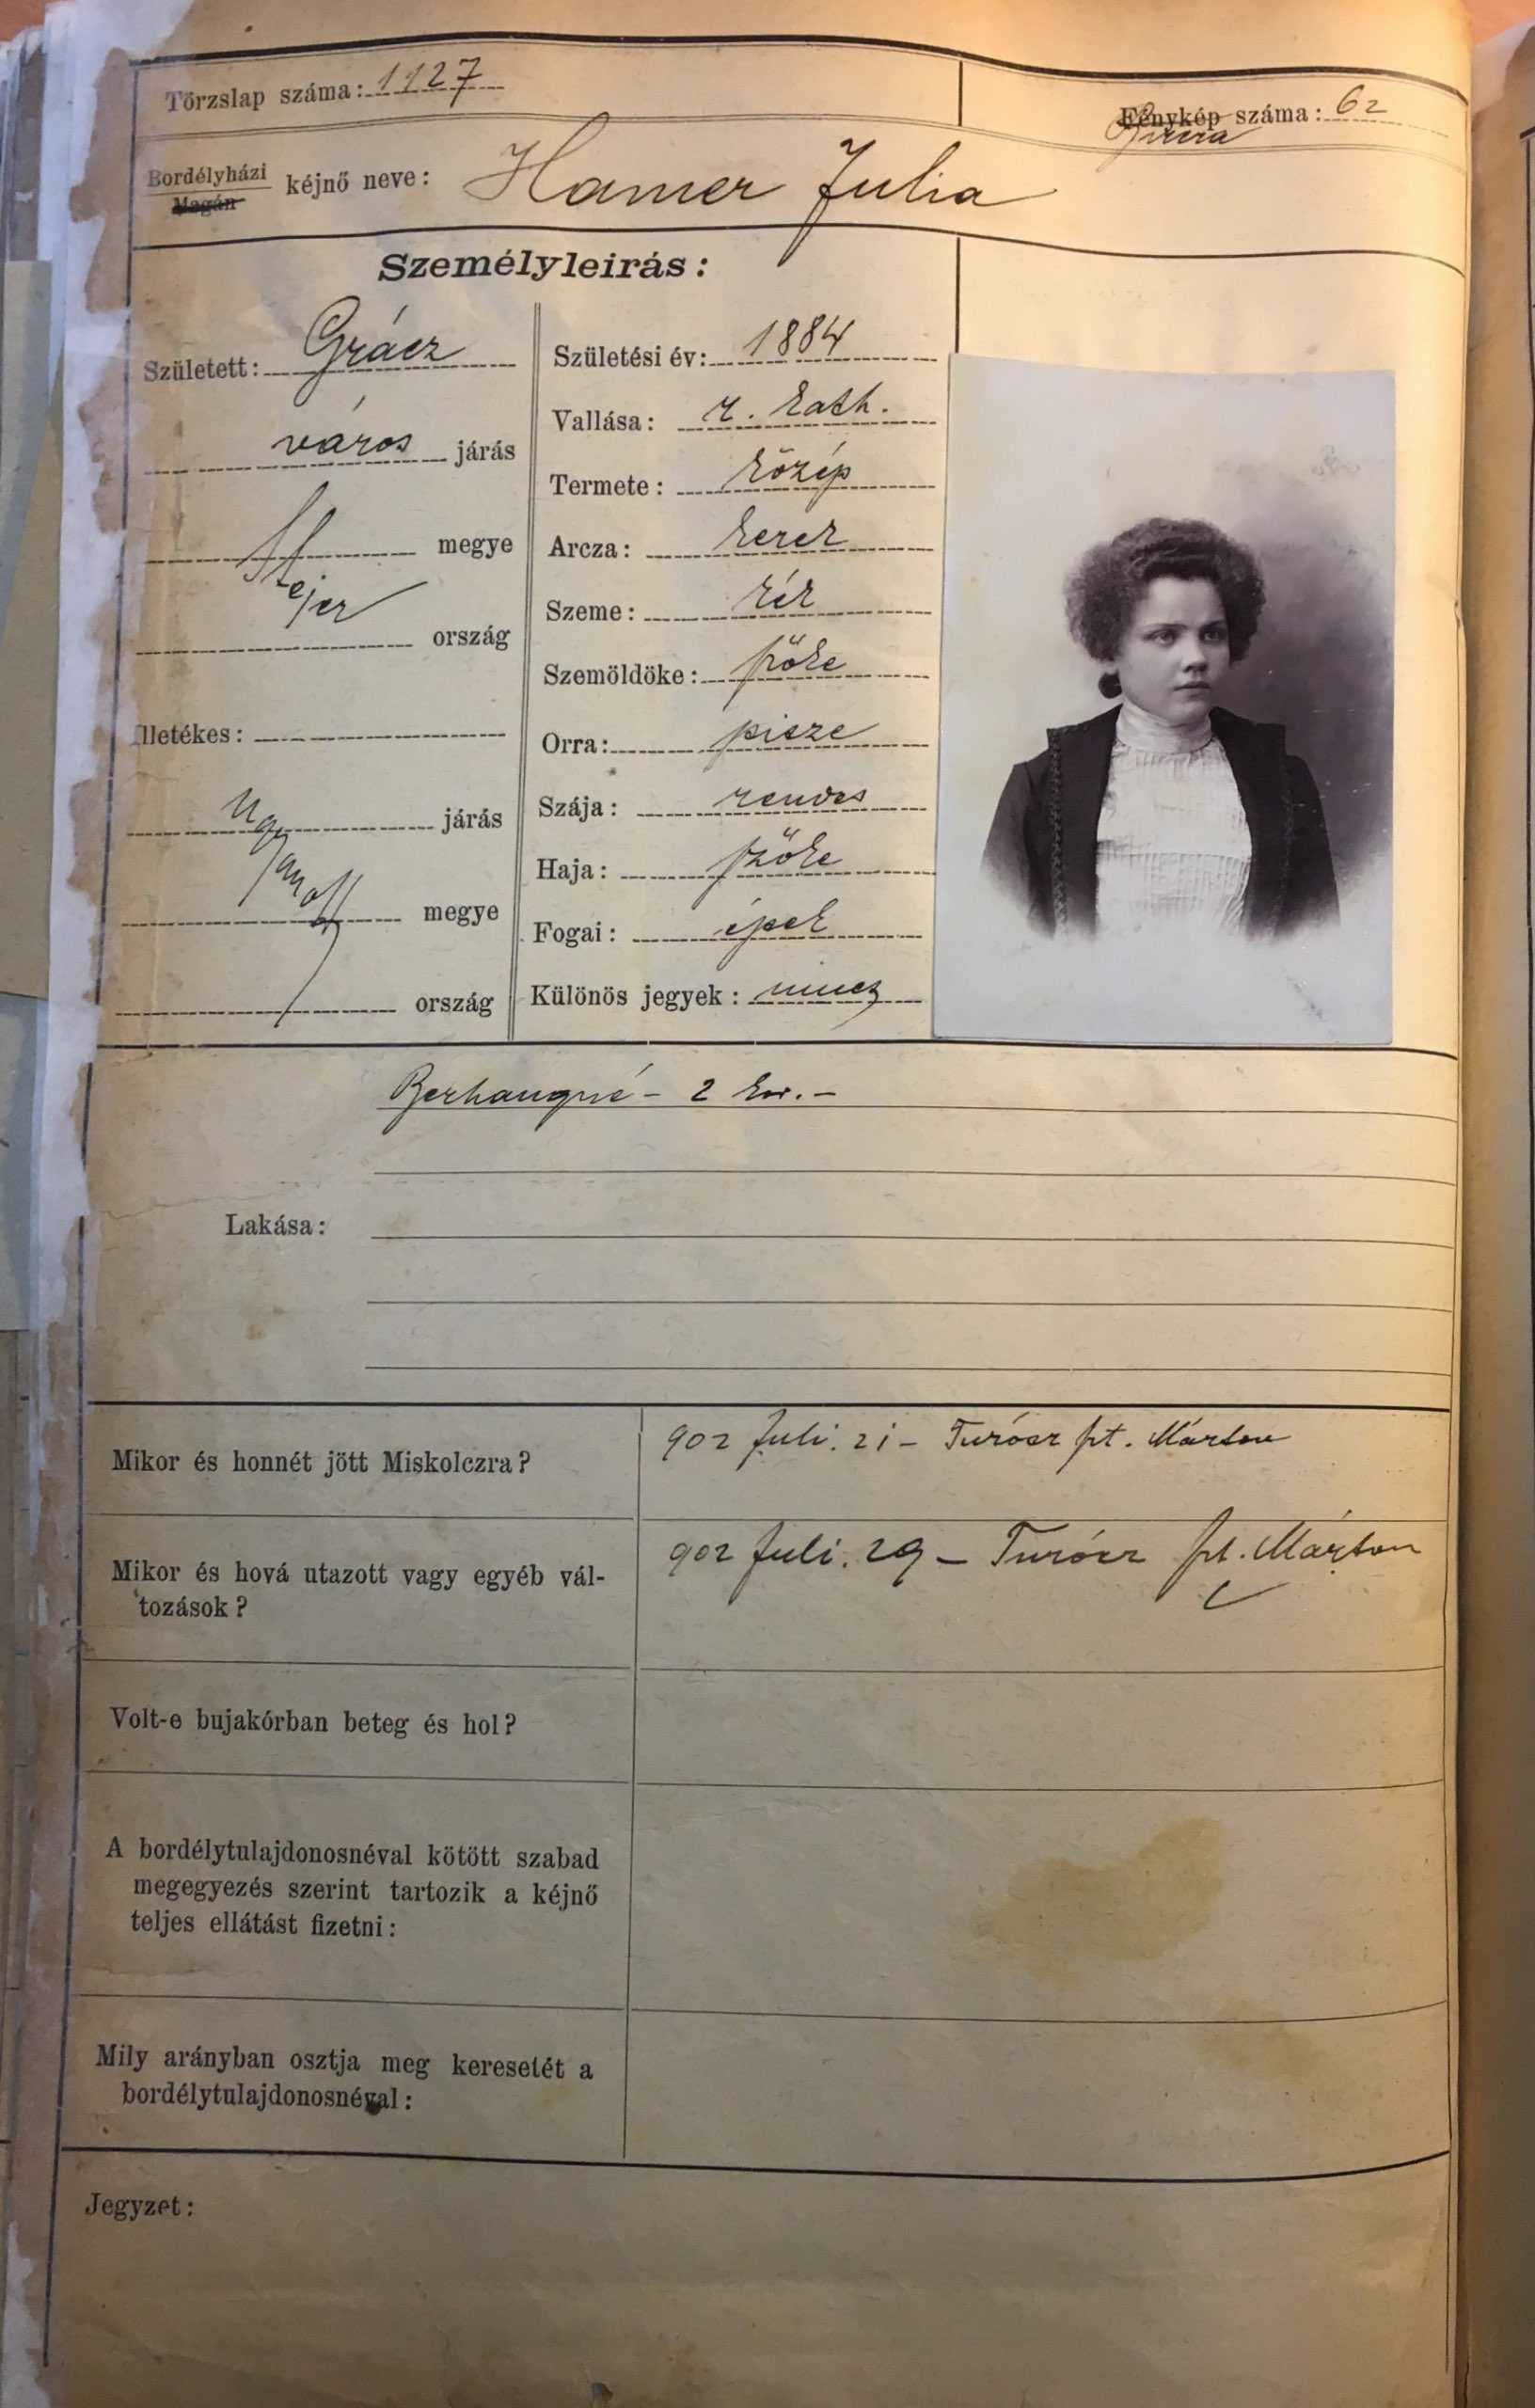 Törzslap száma: 1127
Fénykép száma: 62
Bordélyházi
Magán
kéjnő neve: Hamer Julia
Személyleirás:
Született: Grácz
város járás
megye
Stejer
ország
Illetékes:
járás
Ugyanott
megye
ország
Születési év: 1884
Vallása: r. kath.
Termete: közép
Arcza: kerek
Szeme: kék
Szemöldöke: szőke
Orra: pisze
Szája: rendes
Haja: szőke
Fogai: épek
Különös jegyek: nincz
2 ker. –
Lakása:
Mikor és honnét jött Miskolczra?
902 Juli. 21 – Turócz szt. Márton
Mikor és hová utazott vagy egyéb vál-
tozások?
902 Juli. 29 – Turócz szt. Márton
Volt-e bujakórban beteg és hol?
A bordélytulajdonosnéval kötött szabad
megegyezés szerint tartozik a kéjnő
teljes ellátást fizetni:
Mily arányban osztja meg keresetét a
bordélytulajdonosnéval:
Jegyzet: